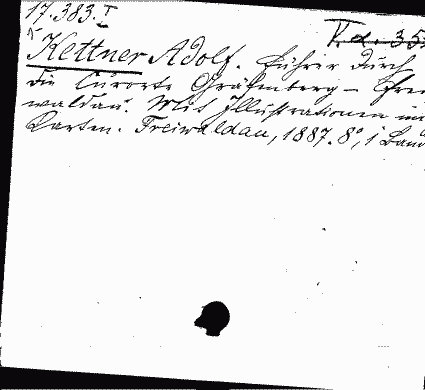 17.383.I
V.d. 35
Kettner Adolf. Führer durch
die Curorte Gräfenberg - Frei
waldau. Mit Illustrationen und
Karten. Freiwaldau, 1887. 8°, 1 Band